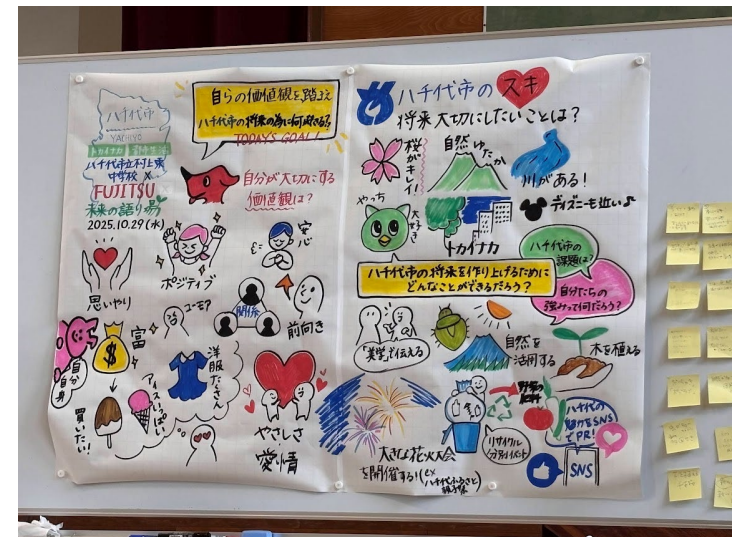 ハチ代市
YACHIYO
トカイナカ 都市生活
八千代市立村上東
中学校 ×
FUJITSU
未来の語り場
2025.10.29(水)
自らの価値観を踏まえ
ハチ代市の将来の為に何ができる?
TODAY'S GOAL!
自分が大切にする
価値観は?
思いやり
ポジティブ
安心
ユーモア
関係
前向き
自分自身
富
買いたい!
アイスいっぱい
洋服たくさん
やさしさ
愛情
ハチ代市のスキ
将来大切にしたいことは?
桜がキレイ!
自然ゆたか
川がある!
やっち
大好き
トカイナカ
ディズニーも近い♪
ハチ代市の
課題は?
ハチ代市の将来を作り上げるために
どんなことができるだろう?
自分たちの
強みって何だろう?
「美学」で伝える
自然を
活用する
木を植える
野菜の
肥料
リサイクル
分別イベント
ハチ代の
魅力をSNS
でPR!
SNS
大きな花火大会
を開催する!(ex
ハチ代ふるさと
親子祭